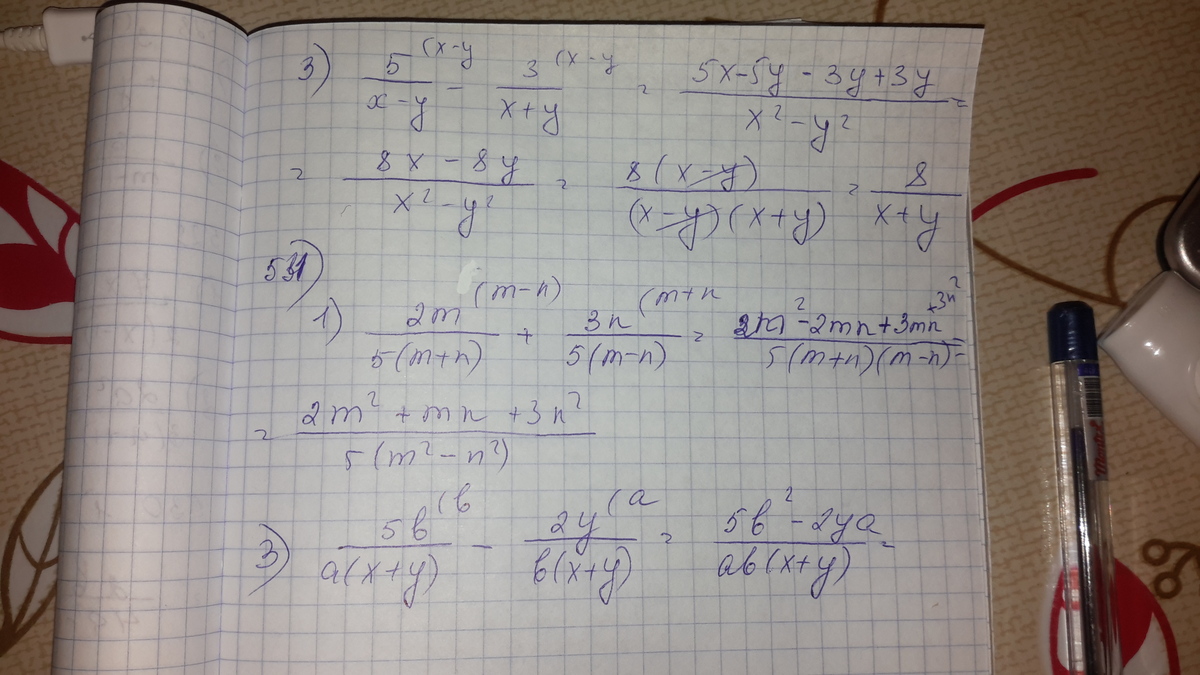 3) 5/(x-y) (x-y - 3/(x+y) (x-y = (5x-5y-3y+3y)/(x²-y²) =
= (8x-8y)/(x²-y²) = 8(x-y)/((x-y)(x+y)) = 8/(x+y)
531)
1) 2m/(5(m+n)) (m-n) + 3n/(5(m-n)) (m+n = (2m²-2mn+3mn+3n²)/(5(m+n)(m-n)) =
= (2m²+mn+3n²)/(5(m²-n²))
3) 5b/(a(x+y)) (b - 2y/(b(x+y)) (a = (5b²-2ya)/(ab(x+y)) =